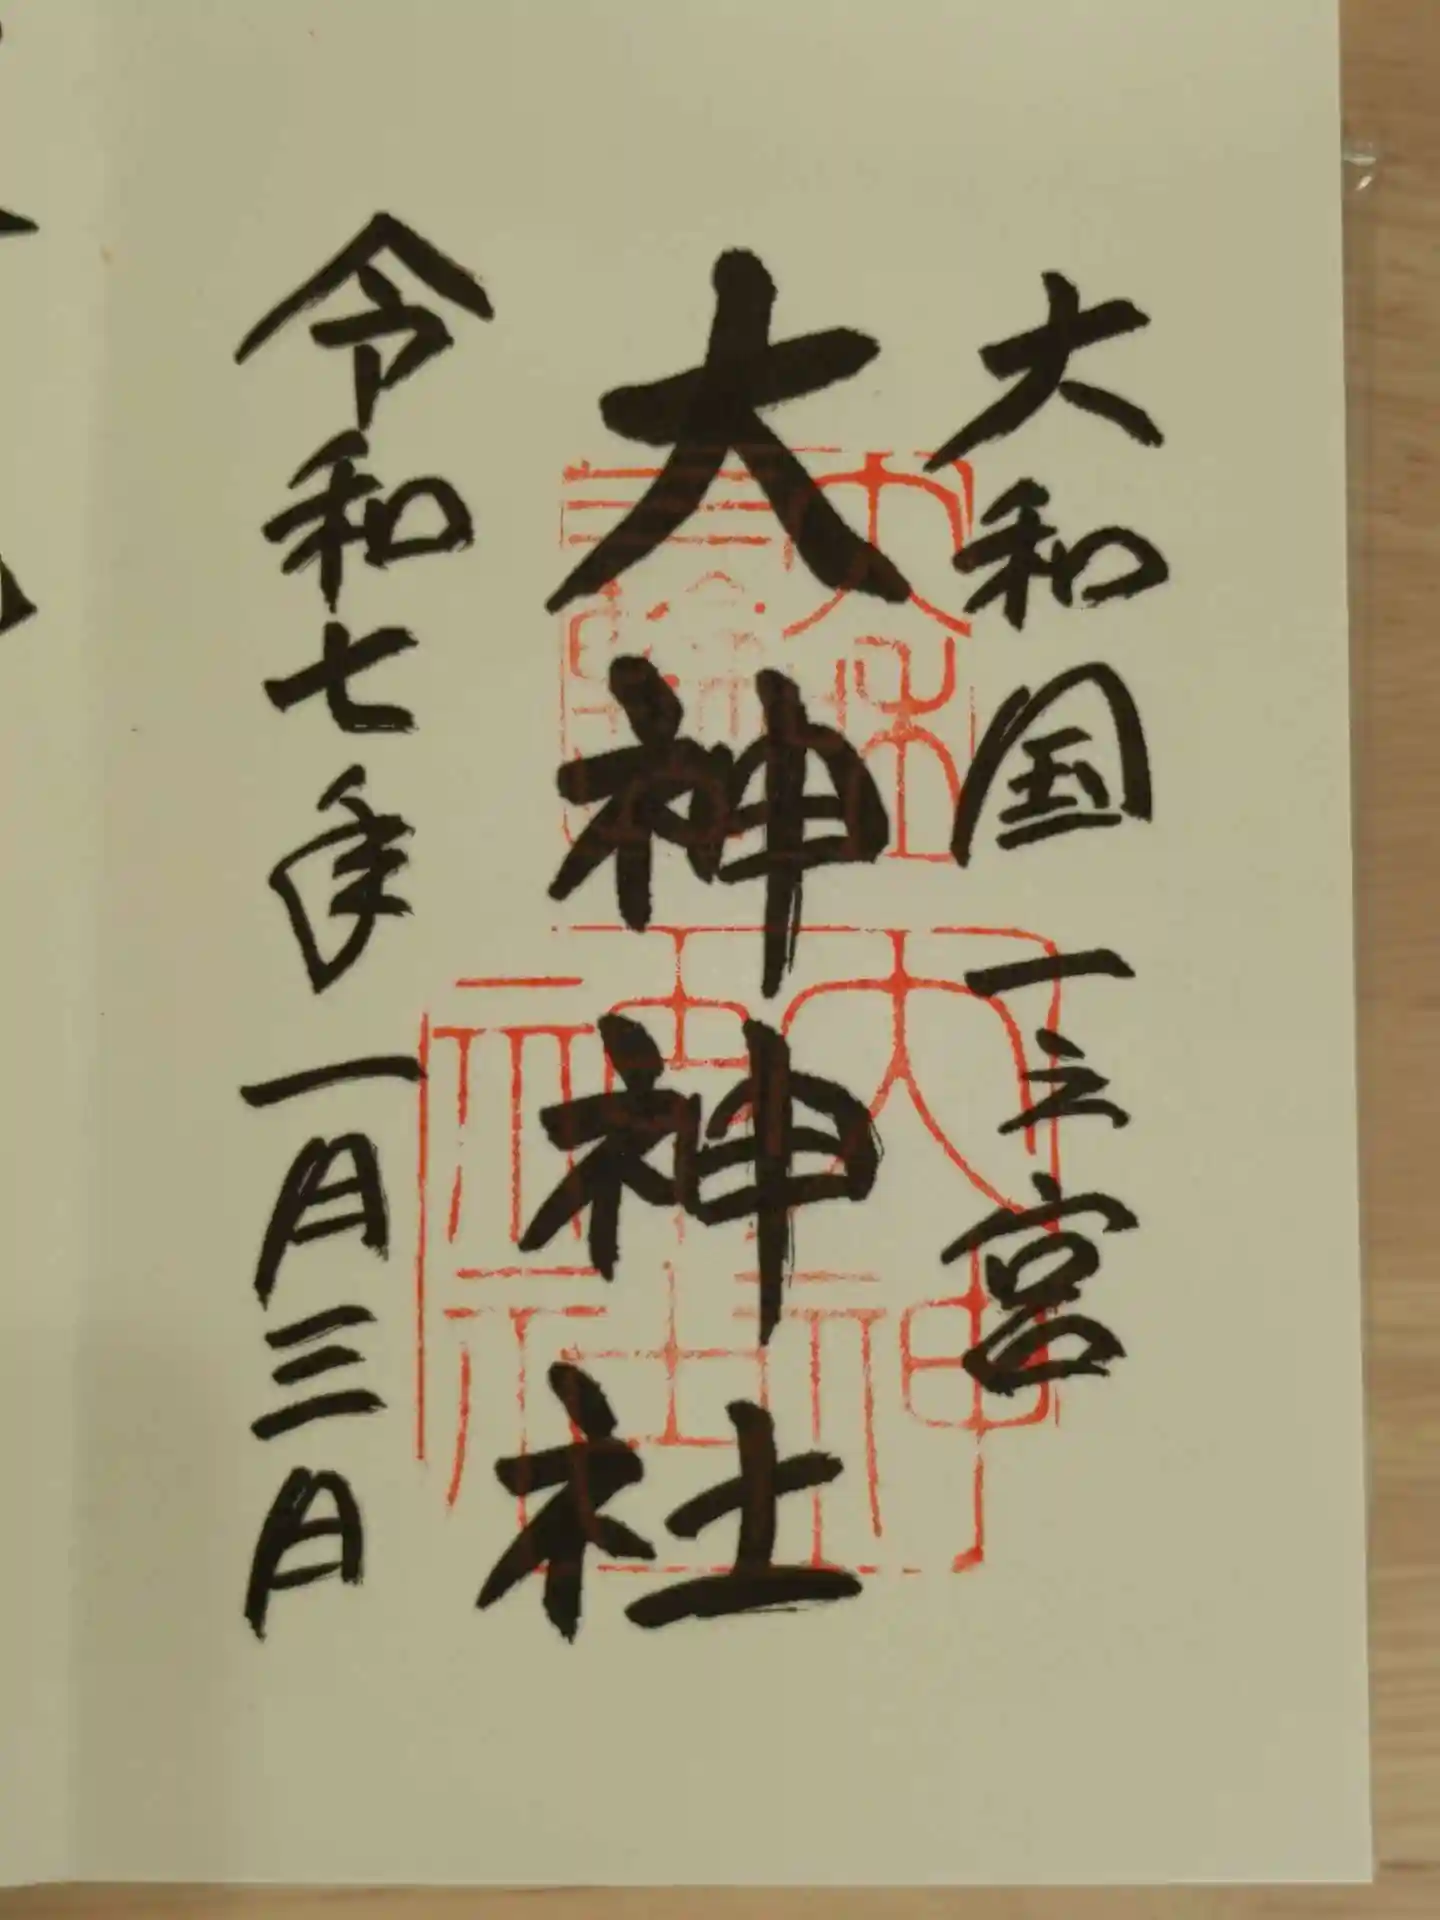 大和国一之宮
大神神社
令和七年一月三日
大神
神社